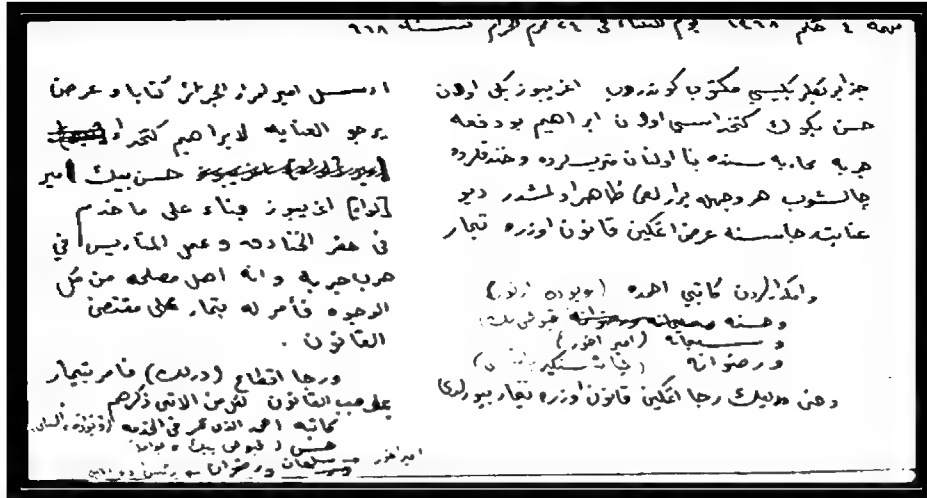 مهمه ٤ حكم ١٤٦٨ يوم الثلاثاء في ٢٦ محرم الحرام سنة ٩٦٨
جزاير بكلربكيسي مكتوب كوندروب اغريبوز بكى اولان
حسن بكوك كتخداسى اولان ابراهيم بو دفعه
جربه محاربه سنده بنا اولنان متريسلرده و خندقلرده
چالشوب هر وجهله يرارلغى ظاهر اولمشدر ديو
عنايت رجاسنه عرض اتمكين قانون اوزره تيمار
وامكدارلردن كاتبي احمده
وحسنه قبوجى بك
و سليمانه (امير اخور)
و رضوانه
دخى ديرلك رجا اتمكين قانون اوزره تيمار بيورلدى
ارسل امير امراء الجزائر كتابا وعرض
يرجو العنايه لابراهيم كتخداء
حسن بيك [امير
لواء] اغريبوز بناء على ما خدم
في حفر الخنادق و عمل المتاريس في
حرب جربه و انه اصل مصلحه من كل
الوجوه فأمر له بتمار على مقتضى
القانون .
ورجا اقطاع (درلك) فامر بتيمار
على حسب القانون لكل من الاتي ذكرهم
كاتبه احمد الذى في الخدمه
حسن (قبوجى بيك
امير اخور سليمان و رضوان